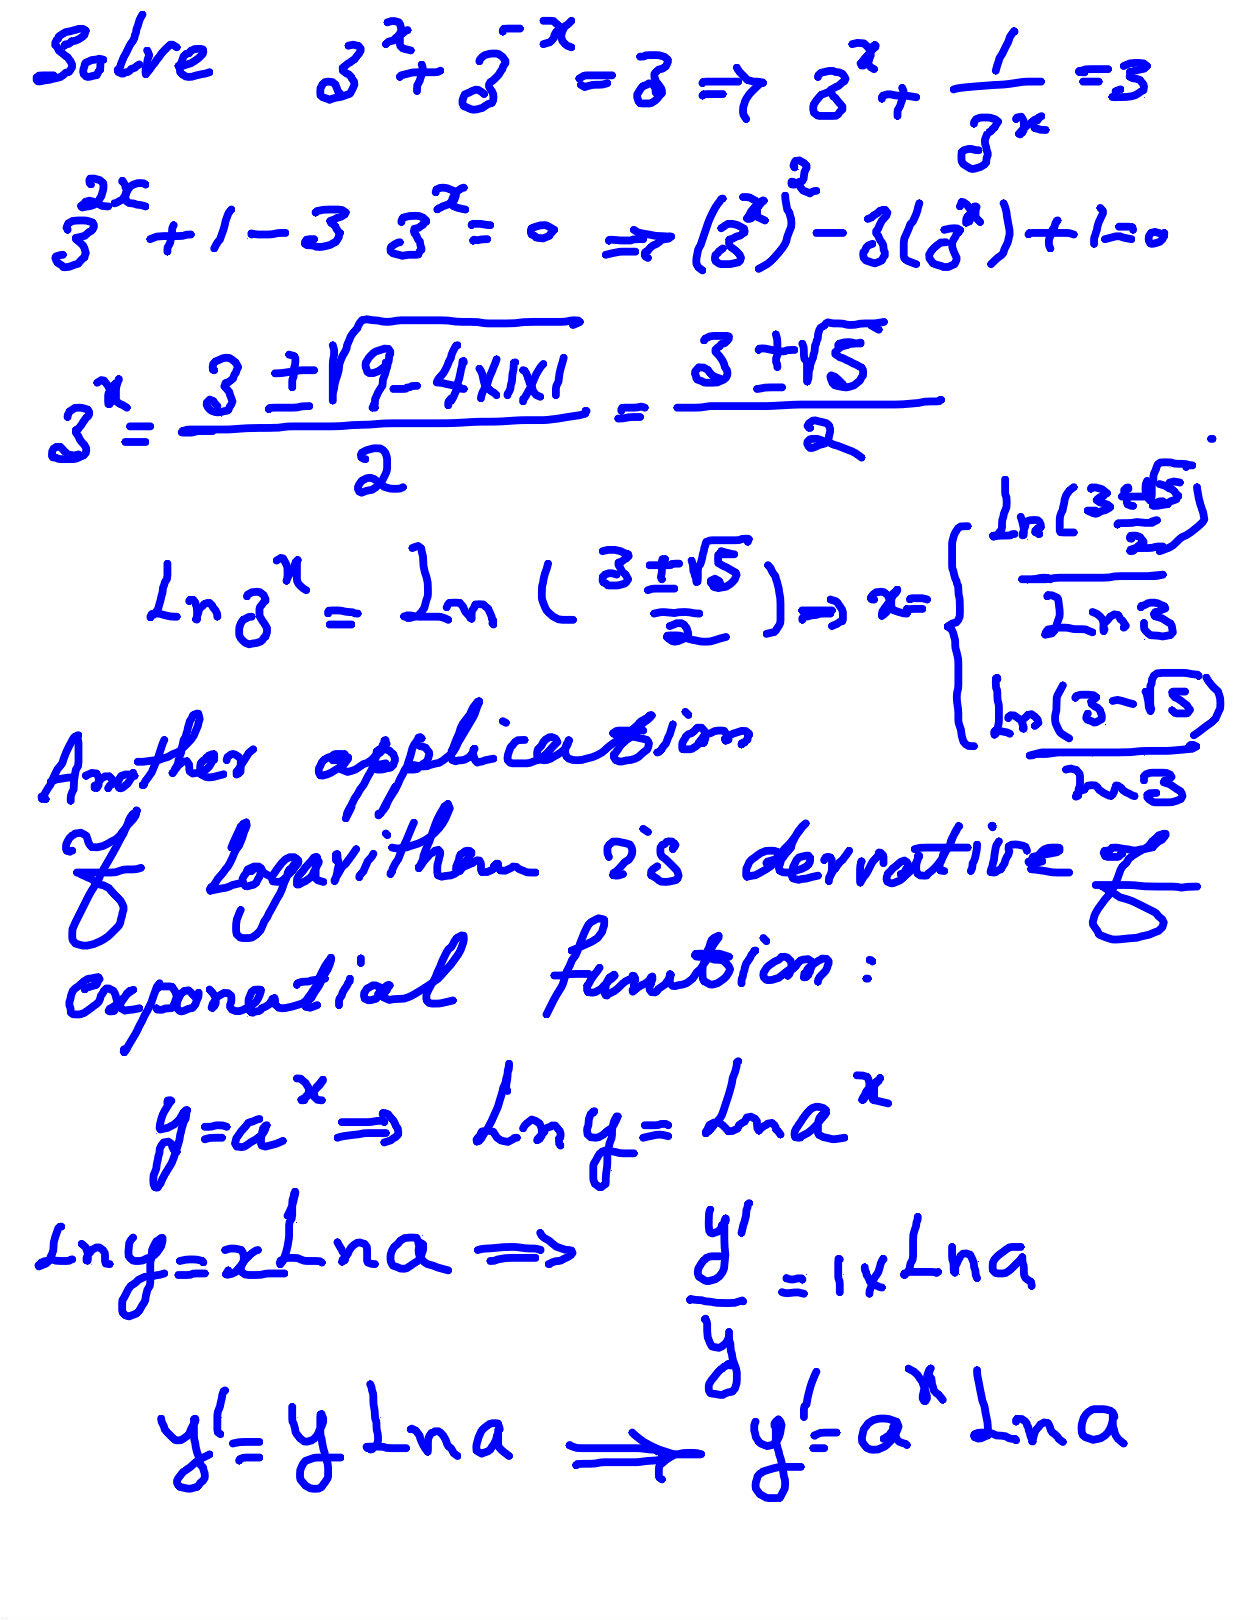 Solve 3^x + 3^-x = 3 => 3^x + 1/3^x = 3
3^2x + 1 - 3 3^x = 0 => (3^x)^2 - 3(3^x) + 1 = 0
3^x = (3 ± √(9 - 4×1×1))/2 = (3 ± √5)/2
Ln 3^x = Ln ((3 ± √5)/2) → x = { ln((3 ± √5)/2) / Ln 3
ln(3 - √5) / ln 3
Another application
of Logarithm is dervative of
exponential function :
y = a^x => Ln y = Ln a^x
Ln y = x Ln a => y'/y = 1 × Ln a
y' = y Ln a => y' = a^x Ln a